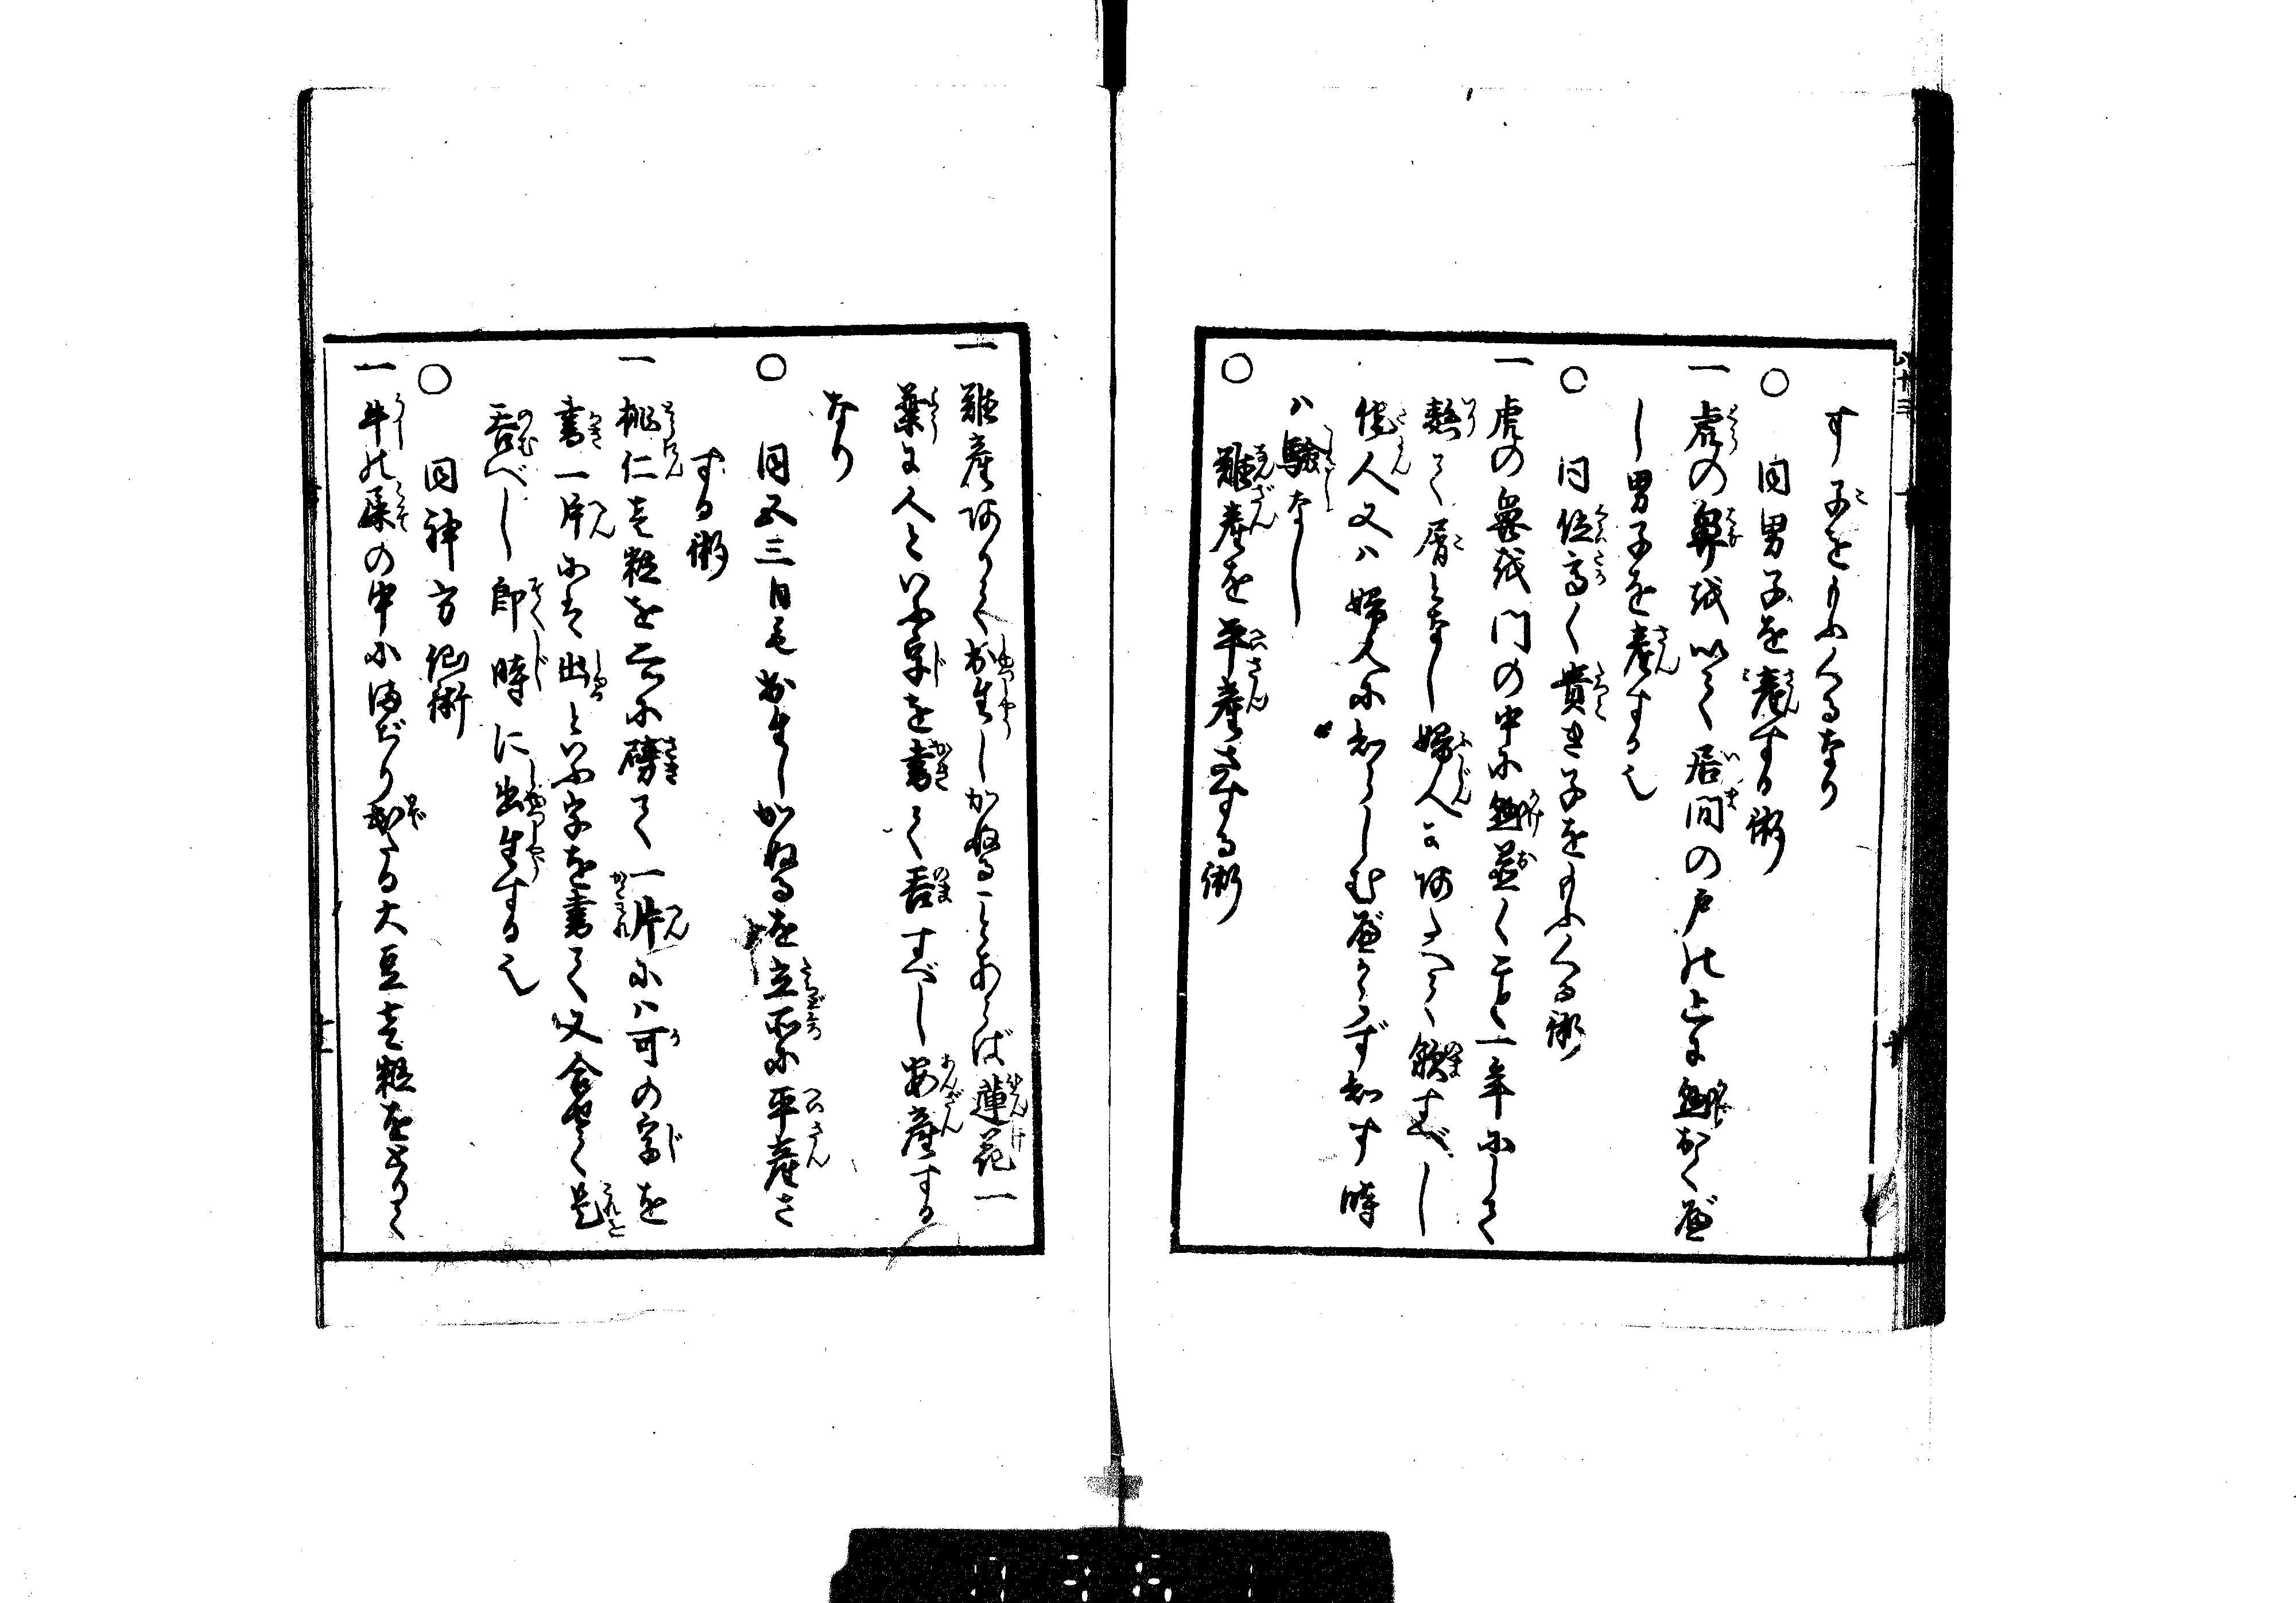 す子をもふくるなり
○ 同男子を産する術
一 虎の鼻を以て居間の戸の上に懸おくべ
し男子を産する也
○ 同位高く貴き子をもふくる術
一 虎の鼻を門の中に懸置く事一年にして
熬て屑となし婦人にあたへて飲すべし
他人又は婦人に知らしむべからず知す時
は驗なし
○ 難産を平産さする術
一 難産ありて出生しかぬることあらば蓮花一
葉に人といふ字を書て呑すべし安産する
なり
○ 同五三日も出生しかぬるを立所に平産さ
する術
一 桃仁壱粒を二に磨て一片には可の字を
書一片には出といふ字を書て又合せて是
呑べし即時に出生する也
○ 同神方仙術
一 牛の屎の中にまじり出たる大豆壱粒をとりて